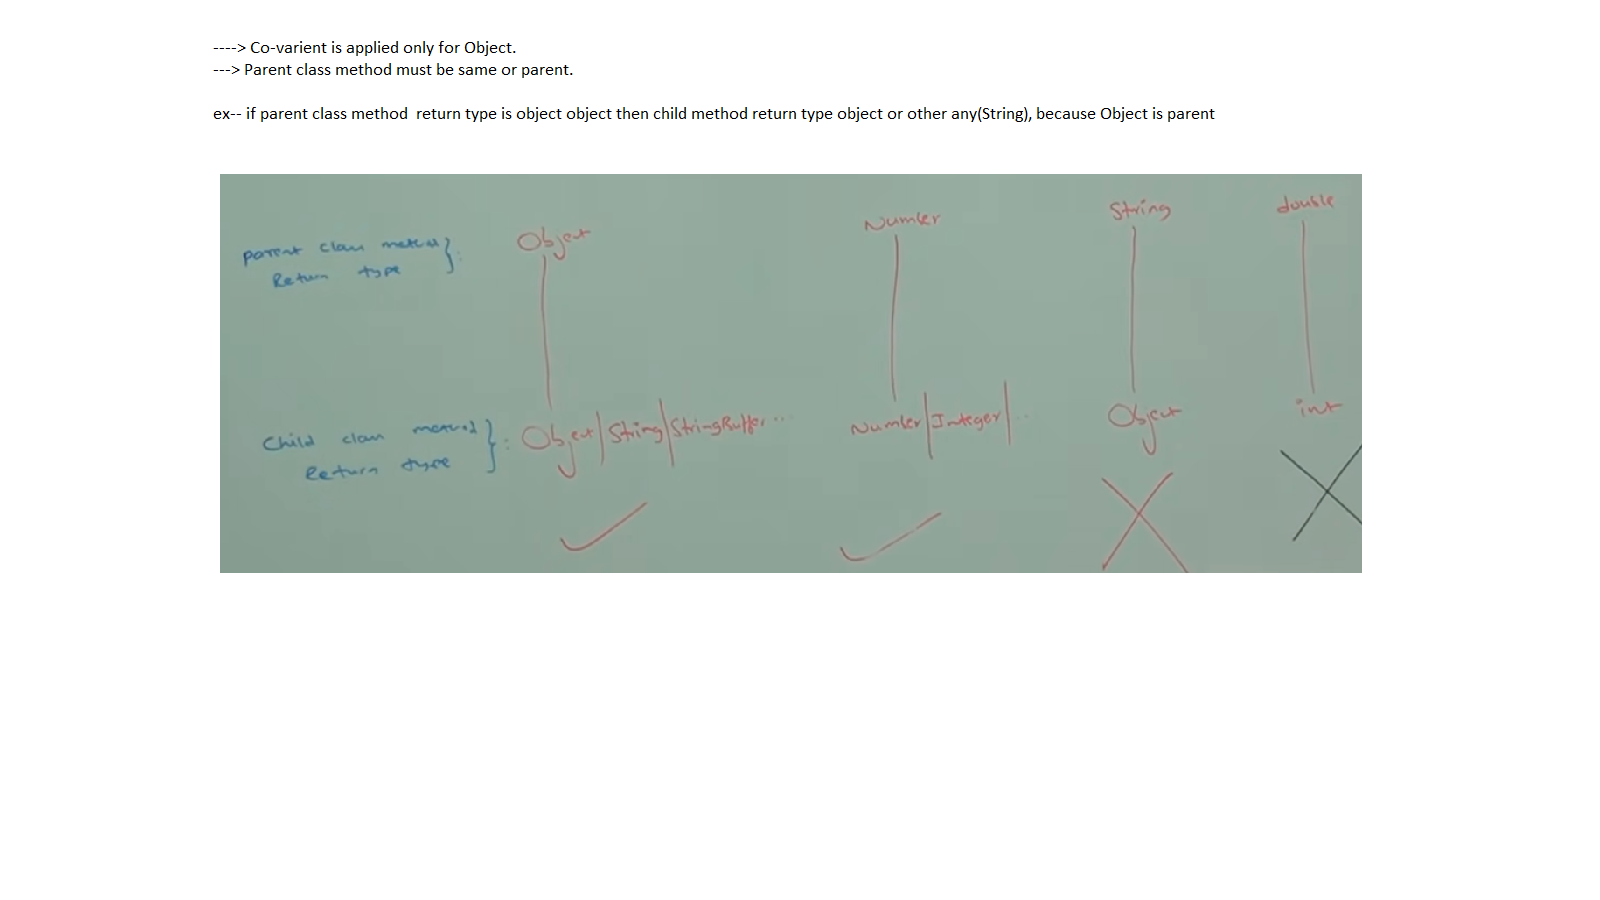 ----> Co-varient is applied only for Object.
---> Parent class method must be same or parent.
ex-- if parent class method  return type is object object then child method return type object or other any(String), because Object is parent
parent class method } :
Return type
Object
Number
String
double
Child class method } :
Return type
Object | String | StringBuffer ...
Number | Integer | ...
Object
int